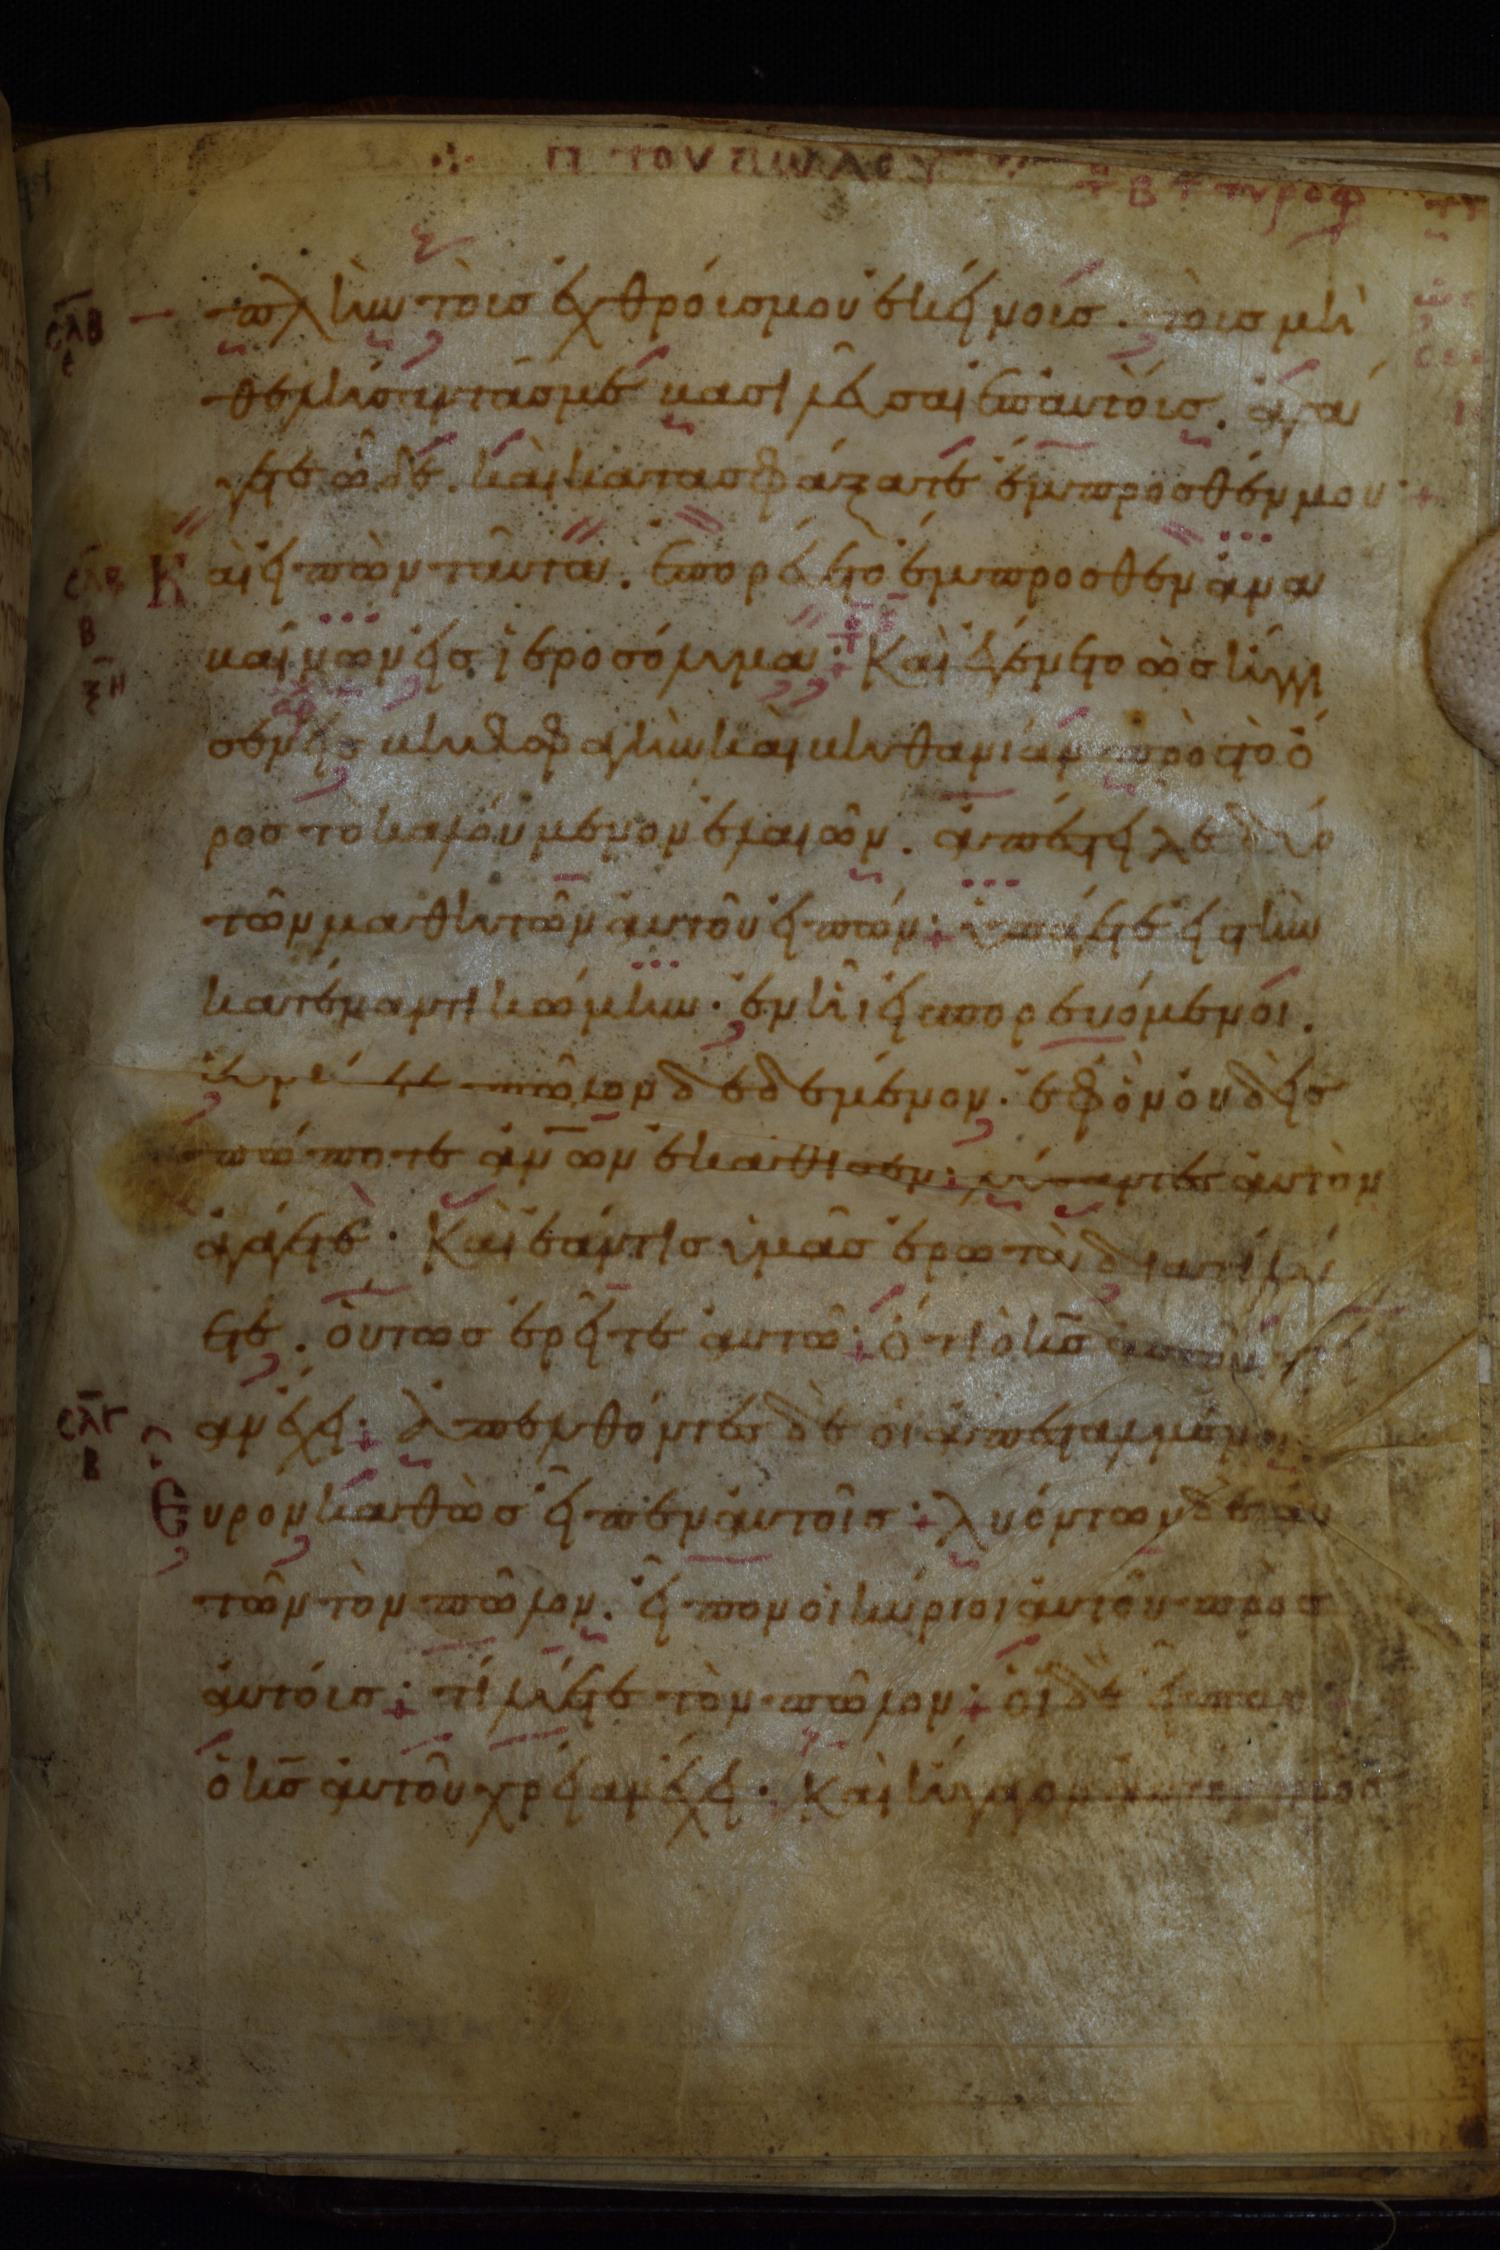 π του πωλου
τ β τ τυροφ
σλβ πλὴν τοὶσ ἐχθρόισ μου ἐκείνοισ. τὸισ μὴ
θελήσαντάσ με βασιλεῦσαι ἐπ αυτόισ. ἀγά
γετε ὧδε. καὶ κατασφάξατε ἔμπροσθέν μου
σλβ β Καὶ εἰπὼν ταῦτα. ἐπορέυετο ἔμπροσθεν ἀνα
βαίνων εἰσ ἱεροσόλυμα: Καὶ ἐγένετο ὼσ ἤγγι
ξη
σεν εἰσ βηθσφαγὴν καὶ βηθανίαν πρὸσ τὸ ὄ
ροσ τὸ καλούμενον ἐλαιῶν. ἀπέστειλε δύο
τῶν μαθητῶν ἀυτοῦ ειπών: ὑπάγετε εἰσ τὴν
κατέναντι κώμην. ἐν ῆι εἰσπορευόμενοι.
ἑυρήσετε πῶλον δεδεμένον. ἐφ ὸν ὀυδεὶσ
πώποτε ἀνων ἐκάθισεν: λύσαντεσ ἀυτὸν
ἀγάγετε. Καὶ ἐάν τισ ὑμᾶσ ἐρωτᾶ. διατί λύ
ετε. ὅυτωσ ἐρεῖτε ἀυτῶ: ὅτι ὁ κσ ἀυτοῦ χρεί
σλγ β αν ἔχει: ἀπελθόντεσ δὲ ὁι ἀπεσταλμένοι
Ευρον καθὼσ εἶπεν ἀυτοῖσ: λυόντων δὲ ἀυ
τῶν τὸν πῶλον. εἶπον ὁι κύριοι ἀυτοῦ προσ
ἀυτόισ: τί λύετε τὸν πῶλον: ὁι δὲ εἶπον
ὁ κσ ἀυτοῦ χρείαν ἔχει. Καὶ ἤγαγον ἀυτὸν προσ